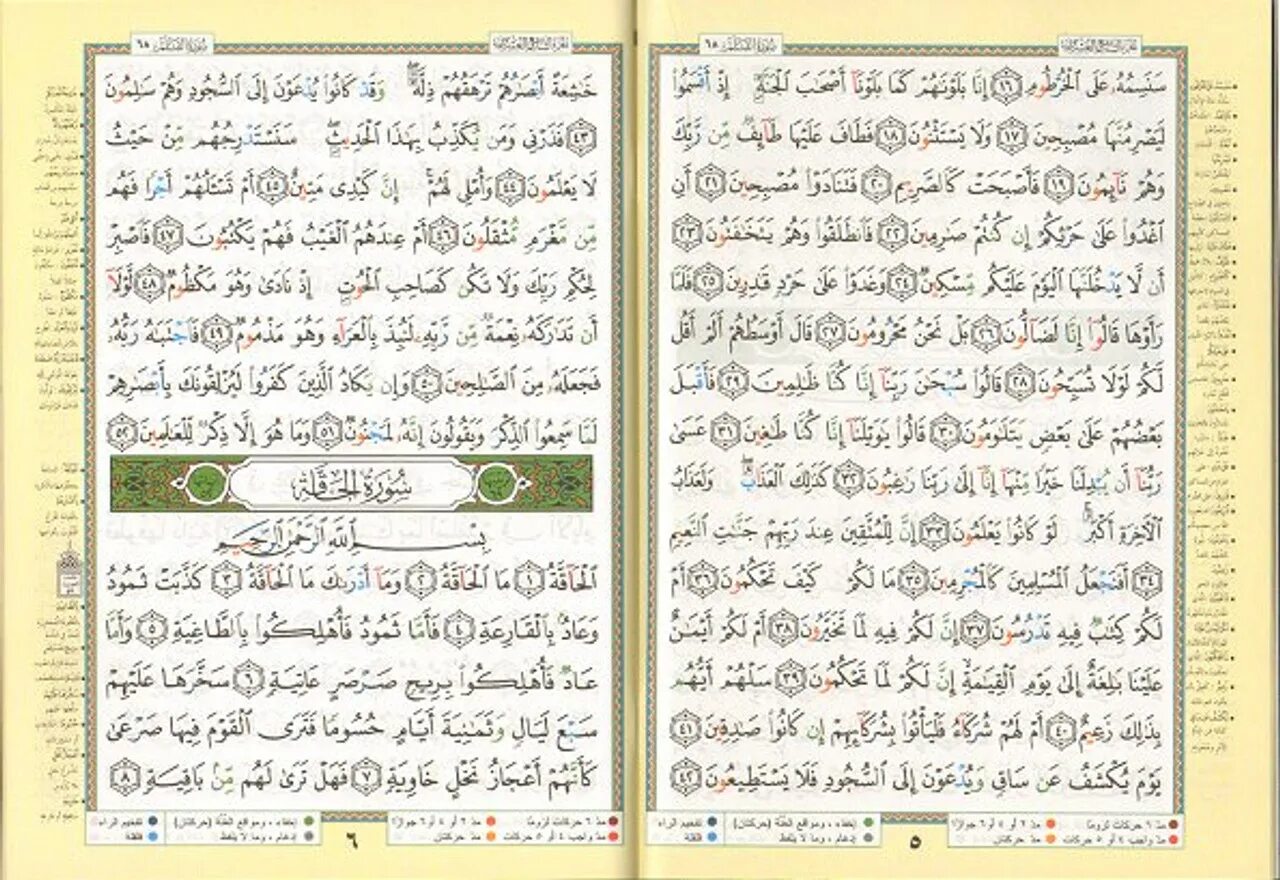 سُورَةُ القَلَم ٦٨
سَنَسِمُهُۥ عَلَى ٱلۡخُرۡطُومِ ١٦ إِنَّا بَلَوۡنَٰهُمۡ كَمَا بَلَوۡنَآ أَصۡحَٰبَ ٱلۡجَنَّةِ إِذۡ أَقۡسَمُوا۟
لَيَصۡرِمُنَّهَا مُصۡبِحِينَ ١٧ وَلَا يَسۡتَثۡنُونَ ١٨ فَطَافَ عَلَيۡهَا طَآئِفٞ مِّن رَّبِّكَ
وَهُمۡ نَآئِمُونَ ١٩ فَأَصۡبَحَتۡ كَٱلصَّرِيمِ ٢٠ فَتَنَادَوۡا۟ مُصۡبِحِينَ ٢١ أَنِ
ٱغۡدُوا۟ عَلَىٰ حَرۡثِكُمۡ إِن كُنتُمۡ صَٰرِمِينَ ٢٢ فَٱنطَلَقُوا۟ وَهُمۡ يَتَخَٰفَتُونَ ٢٣
أَن لَّا يَدۡخُلَنَّهَا ٱلۡيَوۡمَ عَلَيۡكُم مِّسۡكِينٞ ٢٤ وَغَدَوۡا۟ عَلَىٰ حَرۡدٖ قَٰدِرِينَ ٢٥ فَلَمَّا
رَأَوۡهَا قَالُوٓا۟ إِنَّا لَضَآلُّونَ ٢٦ بَلۡ نَحۡنُ مَحۡرُومُونَ ٢٧ قَالَ أَوۡسَطُهُمۡ أَلَمۡ أَقُل
لَّكُمۡ لَوۡلَا تُسَبِّحُونَ ٢٨ قَالُوا۟ سُبۡحَٰنَ رَبِّنَآ إِنَّا كُنَّا ظَٰلِمِينَ ٢٩ فَأَقۡبَلَ
بَعۡضُهُمۡ عَلَىٰ بَعۡضٖ يَتَلَٰوَمُونَ ٣٠ قَالُوا۟ يَٰوَيۡلَنَآ إِنَّا كُنَّا طَٰغِينَ ٣١ عَسَىٰ
رَبُّنَآ أَن يُبۡدِلَنَا خَيۡرٗا مِّنۡهَآ إِنَّآ إِلَىٰ رَبِّنَا رَٰغِبُونَ ٣٢ كَذَٰلِكَ ٱلۡعَذَابُ وَلَعَذَابُ
ٱلۡأٓخِرَةِ أَكۡبَرُ لَوۡ كَانُوا۟ يَعۡلَمُونَ ٣٣ إِنَّ لِلۡمُتَّقِينَ عِندَ رَبِّهِمۡ جَنَّٰتِ ٱلنَّعِيمِ
٣٤ أَفَنَجۡعَلُ ٱلۡمُسۡلِمِينَ كَٱلۡمُجۡرِمِينَ ٣٥ مَا لَكُمۡ كَيۡفَ تَحۡكُمُونَ ٣٦ أَمۡ
لَكُمۡ كِتَٰبٞ فِيهِ تَدۡرُسُونَ ٣٧ إِنَّ لَكُمۡ فِيهِ لَمَا تَخَيَّرُونَ ٣٨ أَمۡ لَكُمۡ أَيۡمَٰنٌ
عَلَيۡنَا بَٰلِغَةٌ إِلَىٰ يَوۡمِ ٱلۡقِيَٰمَةِ إِنَّ لَكُمۡ لَمَا تَحۡكُمُونَ ٣٩ سَلۡهُمۡ أَيُّهُم
بِذَٰلِكَ زَعِيمٌ ٤٠ أَمۡ لَهُمۡ شُرَكَآءُ فَلۡيَأۡتُوا۟ بِشُرَكَآئِهِمۡ إِن كَانُوا۟ صَٰدِقِينَ ٤١
يَوۡمَ يُكۡشَفُ عَن سَاقٖ وَيُدۡعَوۡنَ إِلَى ٱلسُّجُودِ فَلَا يَسۡتَطِيعُونَ ٤٢
مدّ ٦ حركات لزومًا مدّ ٢ أو ٤ أو ٦ جوازًا إخفاء، ومواقع الغُنَّة (حركتان) تفخيم الراء
مدّ واجب ٤ أو ٥ حركات مدّ حركتان إدغام، وما لا يُلفَظ قلقلة
٥
سُورَةُ القَلَم ٦٨
خَٰشِعَةً أَبۡصَٰرُهُمۡ تَرۡهَقُهُمۡ ذِلَّةٞ وَقَدۡ كَانُوا۟ يُدۡعَوۡنَ إِلَى ٱلسُّجُودِ وَهُمۡ سَٰلِمُونَ
٤٣ فَذَرۡنِي وَمَن يُكَذِّبُ بِهَٰذَا ٱلۡحَدِيثِ سَنَسۡتَدۡرِجُهُم مِّنۡ حَيۡثُ
لَا يَعۡلَمُونَ ٤٤ وَأُمۡلِي لَهُمۡ إِنَّ كَيۡدِي مَتِينٌ ٤٥ أَمۡ تَسۡـَٔلُهُمۡ أَجۡرٗا فَهُم
مِّن مَّغۡرَمٖ مُّثۡقَلُونَ ٤٦ أَمۡ عِندَهُمُ ٱلۡغَيۡبُ فَهُمۡ يَكۡتُبُونَ ٤٧ فَٱصۡبِرۡ
لِحُكۡمِ رَبِّكَ وَلَا تَكُن كَصَاحِبِ ٱلۡحُوتِ إِذۡ نَادَىٰ وَهُوَ مَكۡظُومٞ ٤٨ لَّوۡلَآ
أَن تَدَٰرَكَهُۥ نِعۡمَةٞ مِّن رَّبِّهِۦ لَنُبِذَ بِٱلۡعَرَآءِ وَهُوَ مَذۡمُومٞ ٤٩ فَٱجۡتَبَٰهُ رَبُّهُۥ
فَجَعَلَهُۥ مِنَ ٱلصَّٰلِحِينَ ٥٠ وَإِن يَكَادُ ٱلَّذِينَ كَفَرُوا۟ لَيُزۡلِقُونَكَ بِأَبۡصَٰرِهِمۡ
لَمَّا سَمِعُوا۟ ٱلذِّكۡرَ وَيَقُولُونَ إِنَّهُۥ لَمَجۡنُونٞ ٥١ وَمَا هُوَ إِلَّا ذِكۡرٞ لِّلۡعَٰلَمِينَ ٥٢
سُورَةُ الحَاقَّة
بِسۡمِ ٱللَّهِ ٱلرَّحۡمَٰنِ ٱلرَّحِيمِ
ٱلۡحَآقَّةُ ١ مَا ٱلۡحَآقَّةُ ٢ وَمَآ أَدۡرَىٰكَ مَا ٱلۡحَآقَّةُ ٣ كَذَّبَتۡ ثَمُودُ
وَعَادُۢ بِٱلۡقَارِعَةِ ٤ فَأَمَّا ثَمُودُ فَأُهۡلِكُوا۟ بِٱلطَّاغِيَةِ ٥ وَأَمَّا
عَادٞ فَأُهۡلِكُوا۟ بِرِيحٖ صَرۡصَرٍ عَاتِيَةٖ ٦ سَخَّرَهَا عَلَيۡهِمۡ
سَبۡعَ لَيَالٖ وَثَمَٰنِيَةَ أَيَّامٍ حُسُومٗا فَتَرَى ٱلۡقَوۡمَ فِيهَا صَرۡعَىٰ
كَأَنَّهُمۡ أَعۡجَازُ نَخۡلٍ خَاوِيَةٖ ٧ فَهَلۡ تَرَىٰ لَهُم مِّنۢ بَاقِيَةٖ ٨
مدّ ٦ حركات لزومًا مدّ ٢ أو ٤ أو ٦ جوازًا إخفاء، ومواقع الغُنَّة (حركتان) تفخيم الراء
مدّ واجب ٤ أو ٥ حركات مدّ حركتان إدغام، وما لا يُلفَظ قلقلة
٦